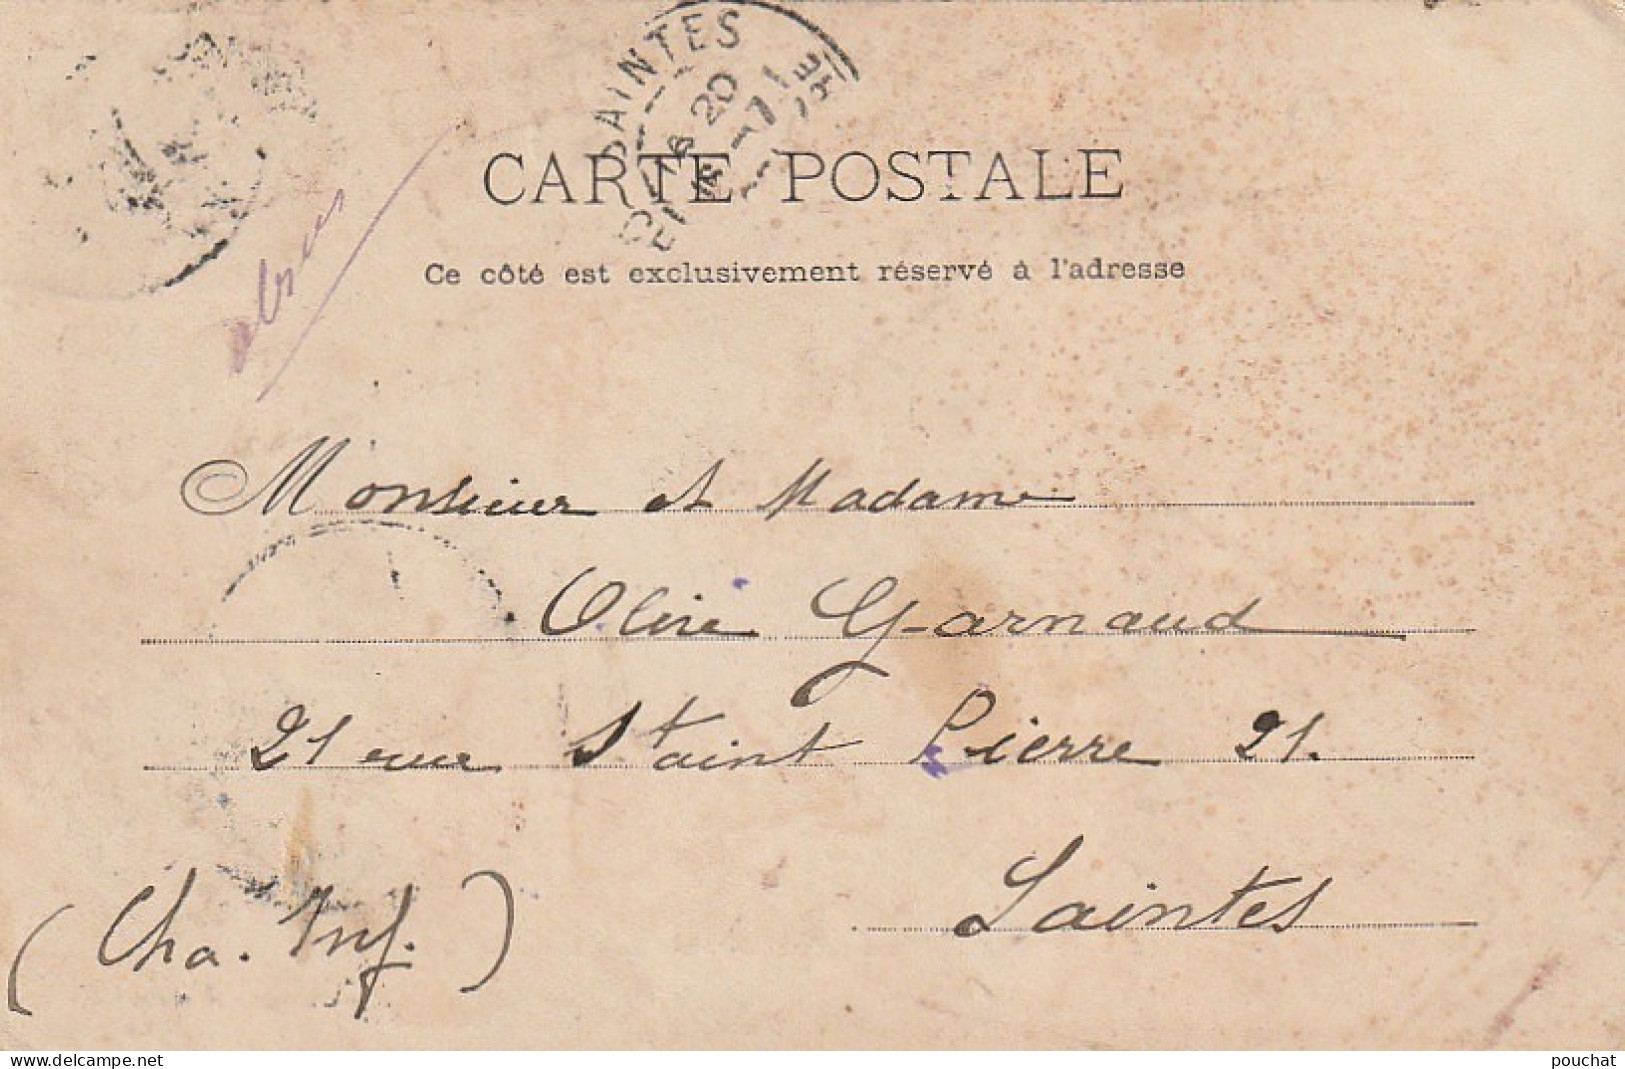 SAINTES
20
CARTE POSTALE
Ce côté est exclusivement réservé à l'adresse
Monsieur et Madame
Garnaud
21 rue Saint Pierre 21.
Saintes
(Cha. Inf.)
www.delcampe.net
pouchat